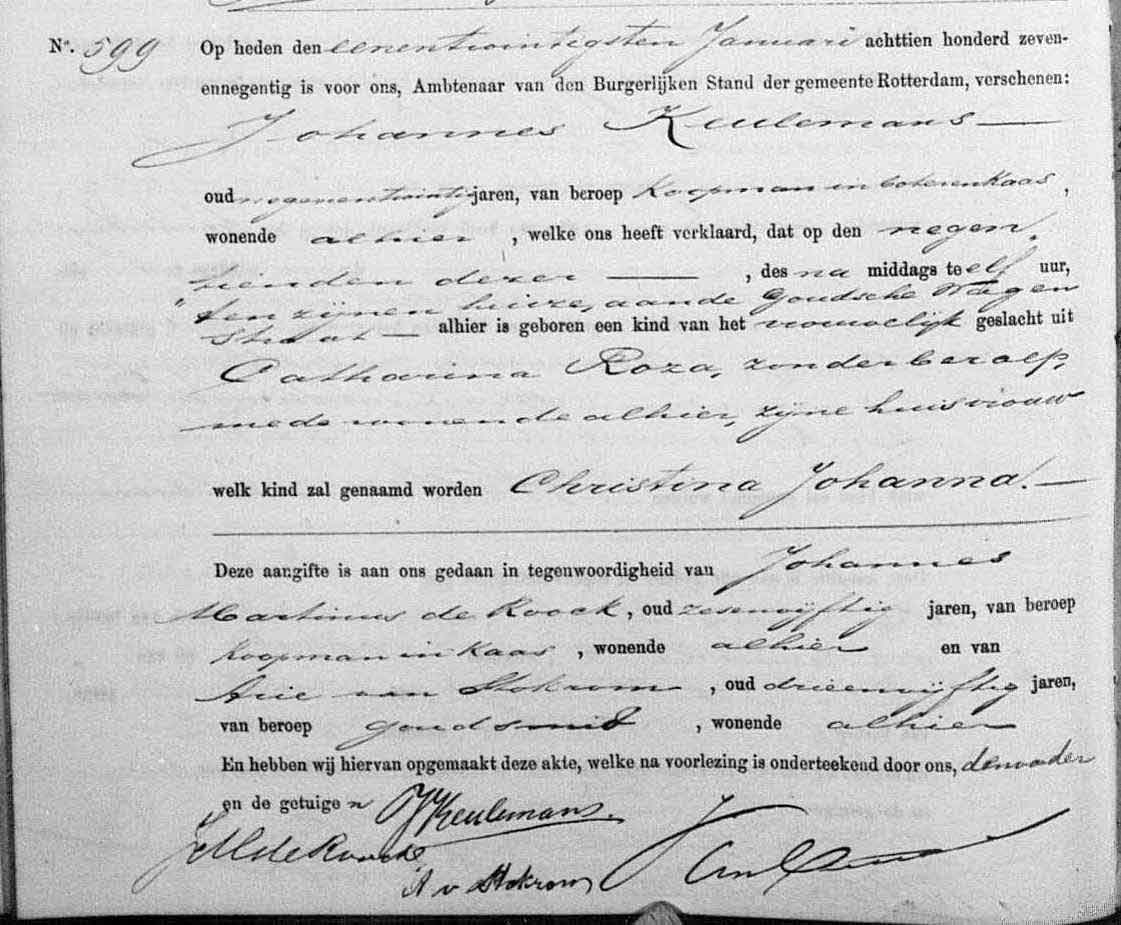 No. 599 Op heden den eenentwintigsten Januari achttien honderd zeven-
ennegentig is voor ons, Ambtenaar van den Burgerlijken Stand der gemeente Rotterdam, verschenen:
Johannes Keulemans
oud negenentwintig jaren, van beroep Koopman in boter en Kaas,
wonende alhier, welke ons heeft verklaard, dat op den negen-
tienden dezer, des na middags te elf uur,
ten zijnen huize, aan de Goudsche Wagen
straat alhier is geboren een kind van het vrouwelijk geslacht uit
Catharina Roza, zonder beroep,
mede wonende alhier, zijne huisvrouw
welk kind zal genaamd worden Christina Johanna.
Deze aangifte is aan ons gedaan in tegenwoordigheid van Johannes
Martinus de Koock, oud zesenvijftig jaren, van beroep
Koopman in Kaas, wonende alhier en van
Arie van Stokrom, oud drieenvijftig jaren,
van beroep goudsmid, wonende alhier
En hebben wij hiervan opgemaakt deze akte, welke na voorlezing is onderteekend door ons, den vader
en de getuigen JKeulemans.
JM de Koock
A v Stokrom